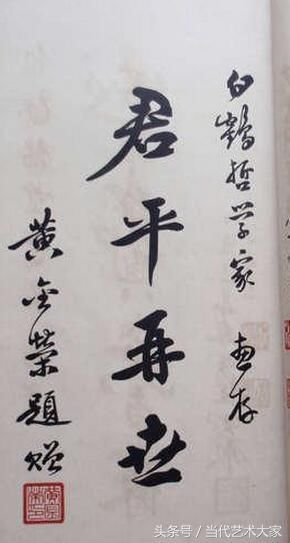 白鹤哲学家 惠存
君平再世
黄金荣题赠
头条号/当代艺术大家